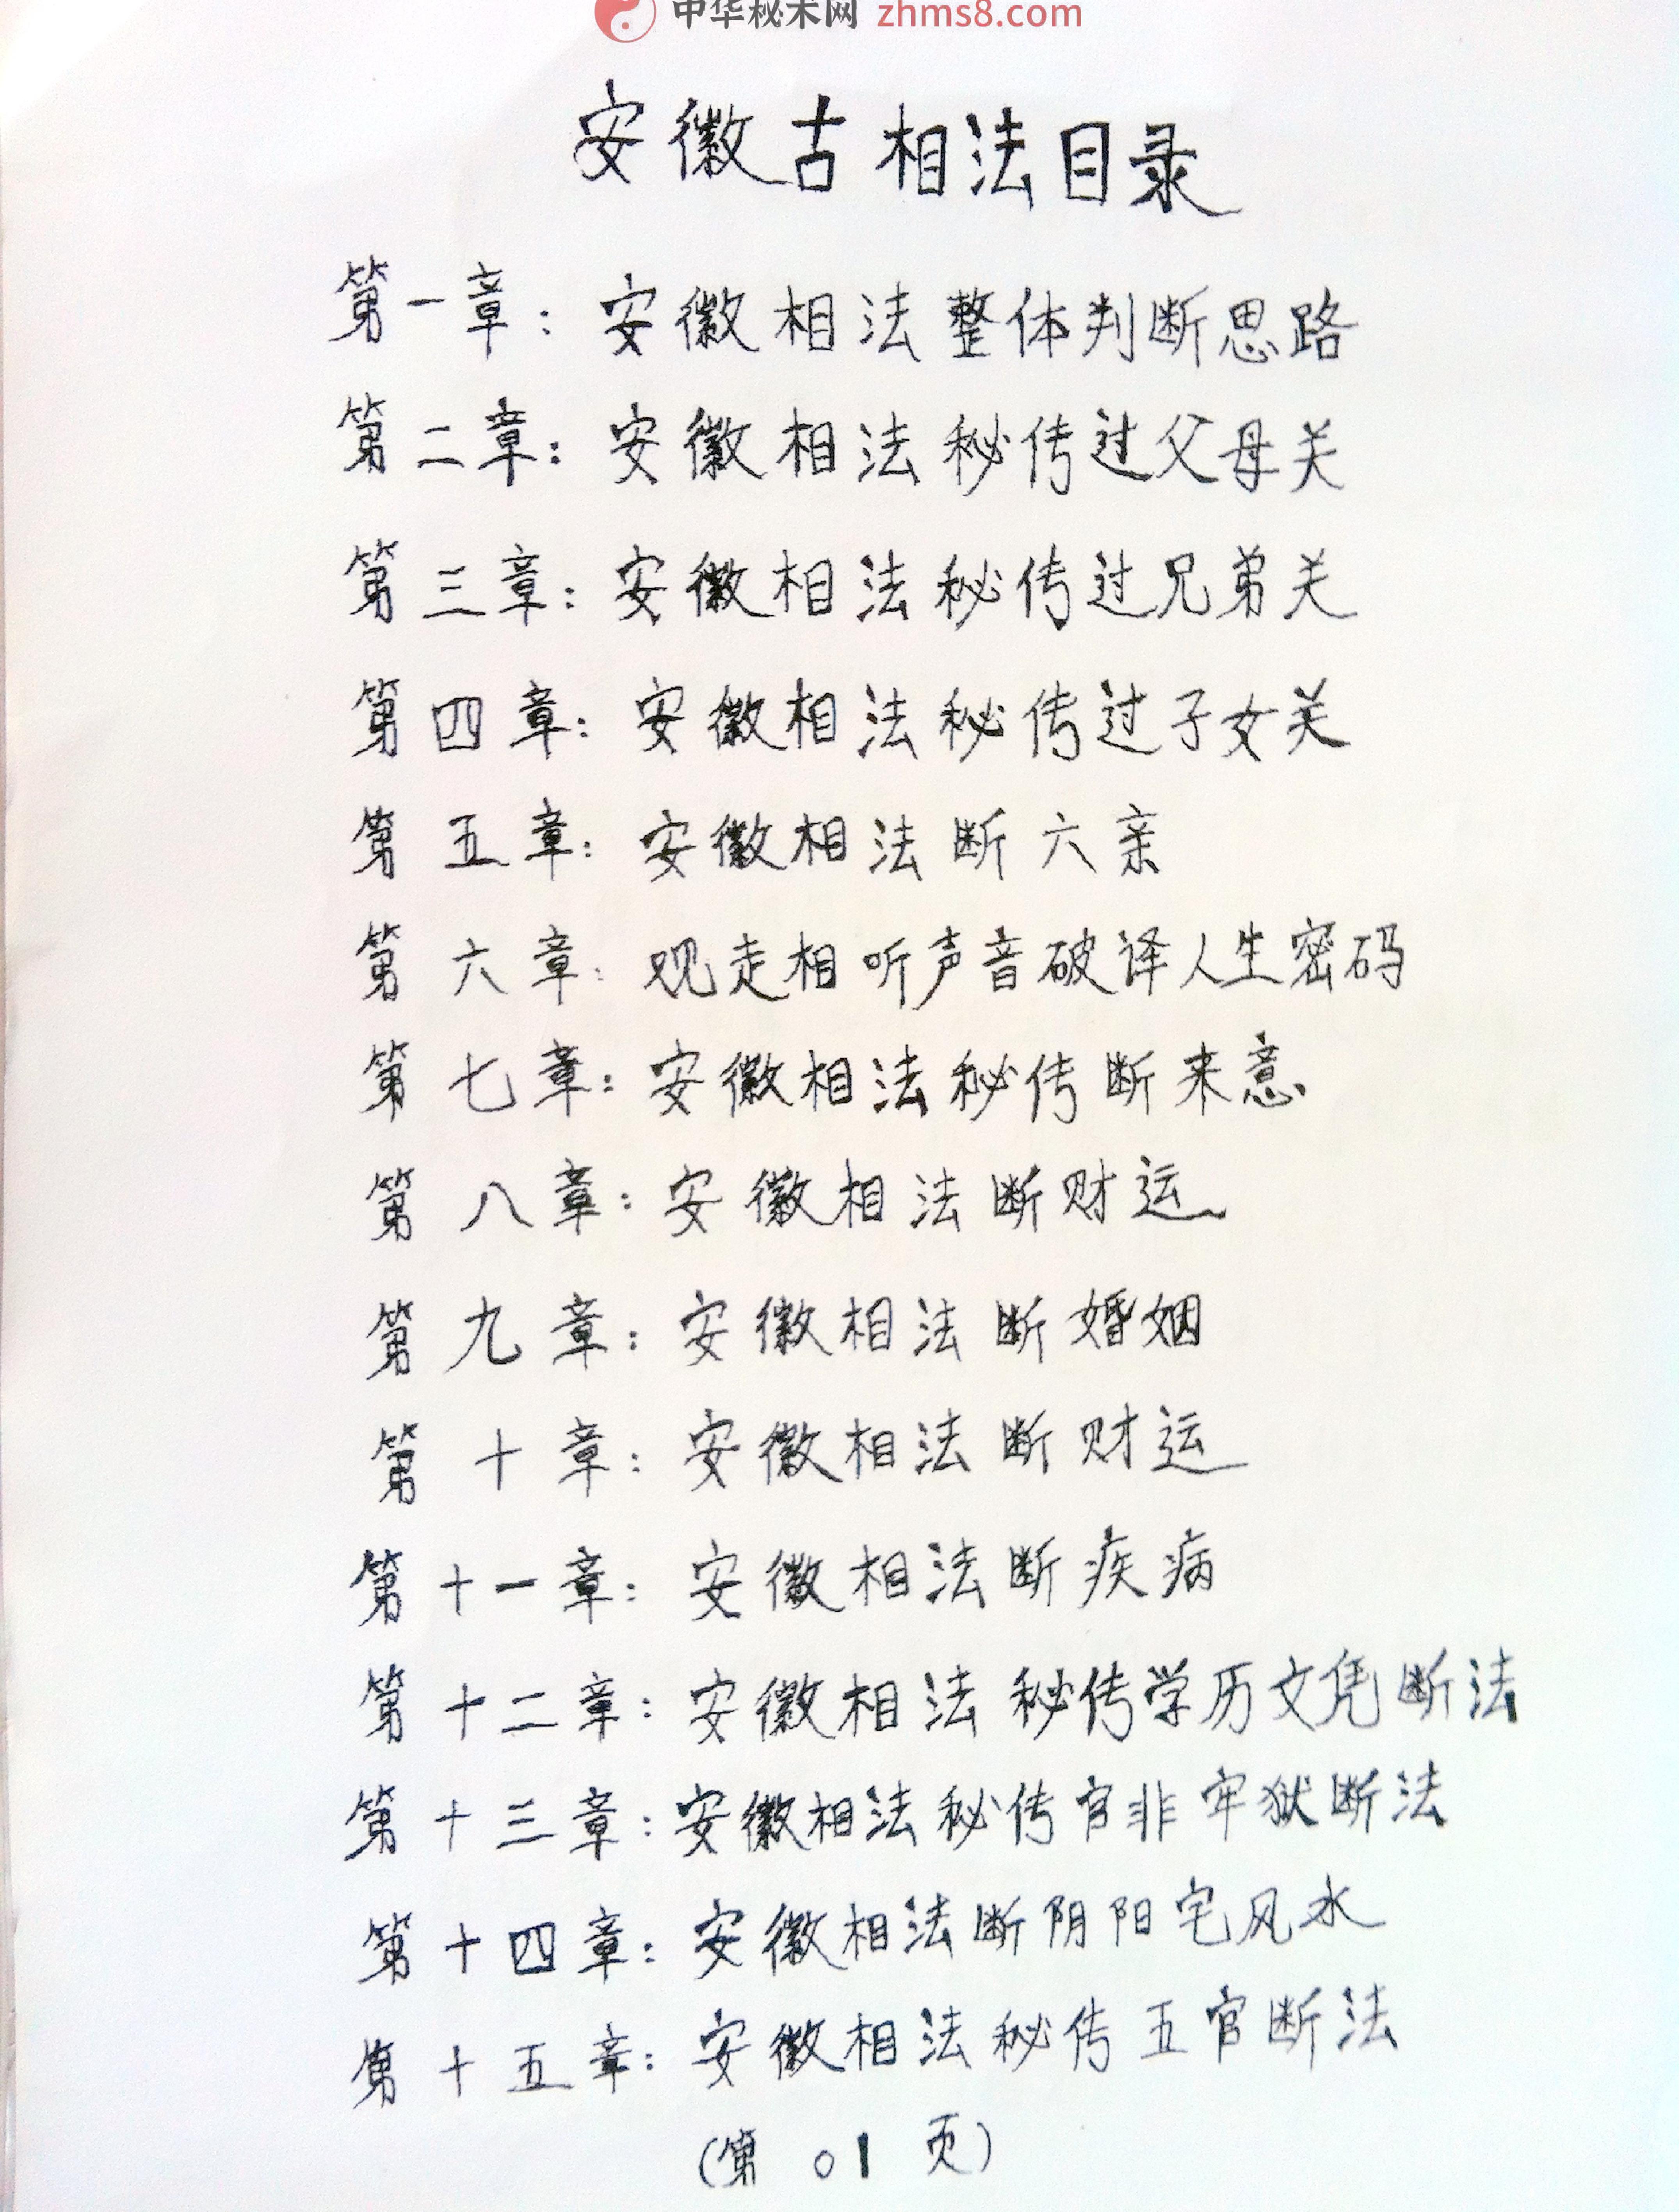 中华秘术网 zhms8.com
安徽古相法目录
第一章：安徽相法整体判断思路
第二章：安徽相法秘传过父母关
第三章：安徽相法秘传过兄弟关
第四章：安徽相法秘传过子女关
第五章：安徽相法断六亲
第六章：观走相听声音破译人生密码
第七章：安徽相法秘传断来意
第八章：安徽相法断财运
第九章：安徽相法断婚姻
第十章：安徽相法断财运
第十一章：安徽相法断疾病
第十二章：安徽相法秘传学历文凭断法
第十三章：安徽相法秘传官非牢狱断法
第十四章：安徽相法断阴阳宅风水
第十五章：安徽相法秘传五官断法
（第01页）